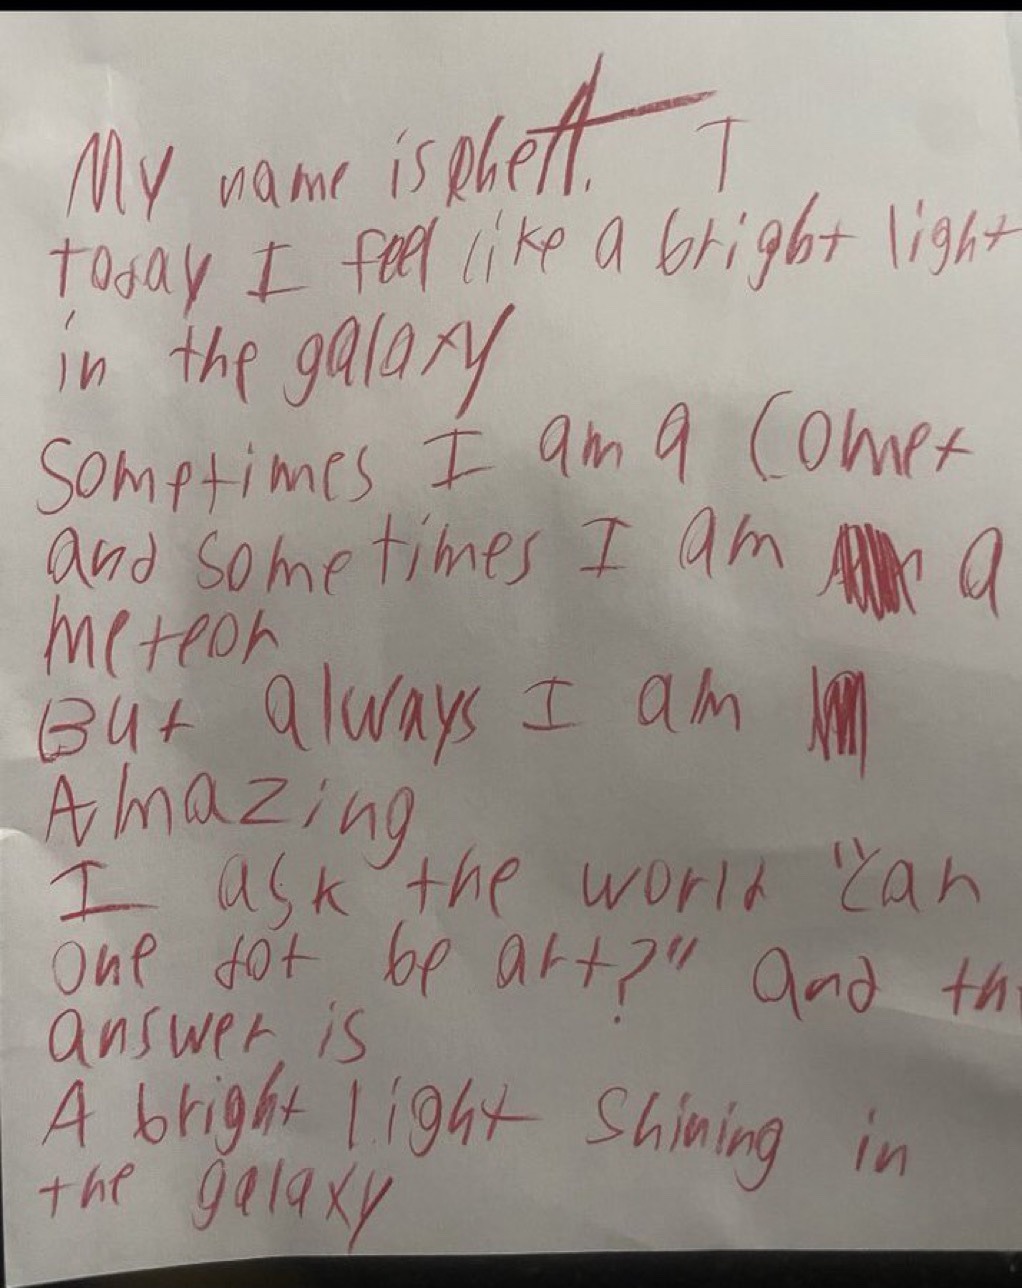 My name is Rhett. T
today I feel like a bright light
in the galaxy
Sometimes I am a Comet
and sometimes I am a
meteor
But always I am
Amazing
I ask the world "Can
one dot be art?" and th
answer is
A bright light shining in
the galaxy